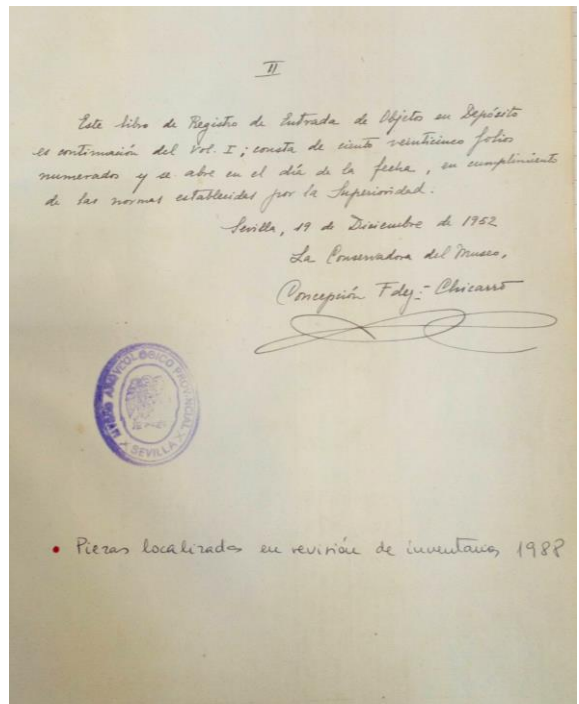 II
Este libro de Registro de Entrada de Objetos en Depósito
es continuación del Vol. I; consta de ciento veinticinco folios
numerados y se abre en el día de la fecha, en cumplimiento
de las normas establecidas por la Superioridad.
Sevilla, 19 de Diciembre de 1952
La Conservadora del Museo,
Concepción Fdez.- Chicarro
MVSEO ARQVEOLOGICO PROVINCIAL
SEVILLA
• Piezas localizadas en revisión de inventarios 1988